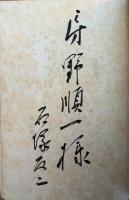 野順一様
石塚友二